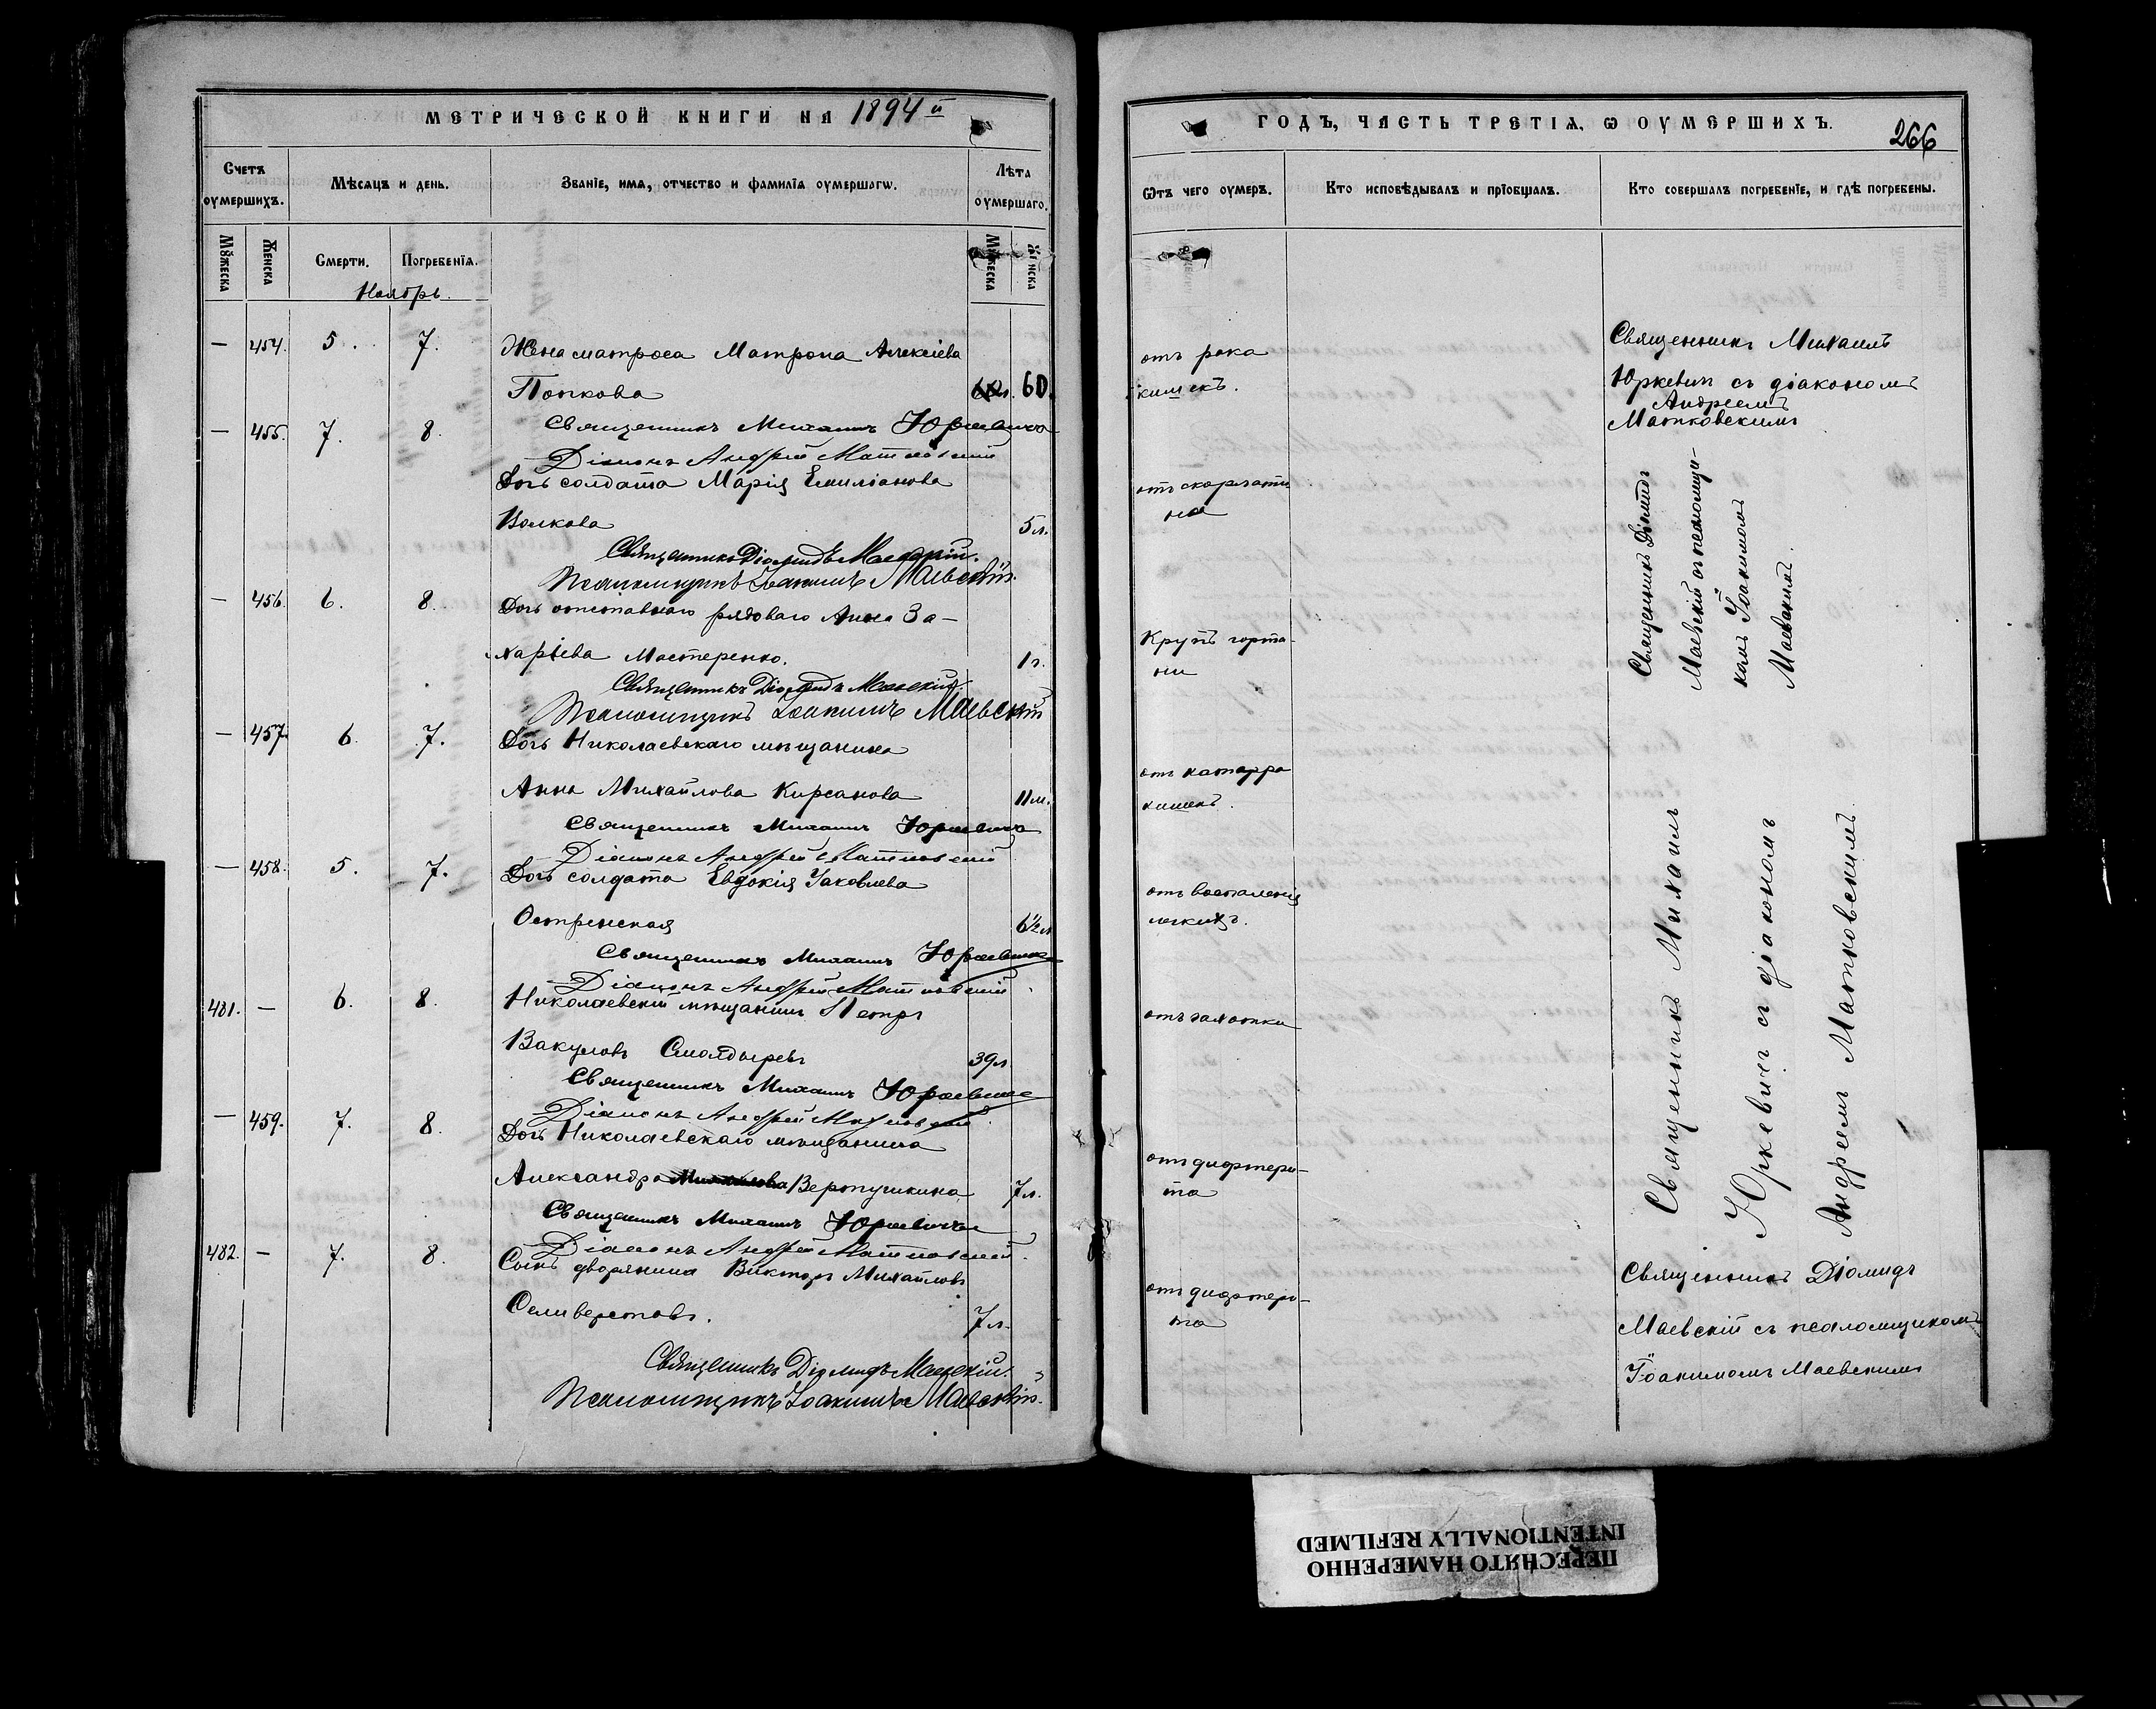 МЕТРИЧЕСКОЙ КНИГИ НА 1894 й
Счетъ оумершихъ.
Мѣсяцъ и день.
Званіе, имя, отчество и фамилія оумершагѡ.
Лѣта оумершаго.
Мꙋжеска
Женска
Смерти.
Погребенія.
Мꙋжеска
Женска
Ноябрь.
— 454. 5. 7. Жена матроса Матрона Алексіева
Попкова 60.
Священникъ Михаилъ Юркевичъ
Діаконъ Андрей Матковскій
— 455. 7. 8. Дочь солдата Марія Емиліанова
Волкова 5 л.
Священникъ Діомидъ Маевскій.
Псаломщикъ Іоакимъ Маевскій.
— 456. 6. 8. Дочь отставнаго рядоваго Анна За-
харіева Мастеренко. 1 г.
Священникъ Діомидъ Маевскій.
Псаломщикъ Іоакимъ Маевскій
— 457. 6. 7. Дочь Николаевскаго мѣщанина
Анна Михайлова Кирсанова 11 м.
Священникъ Михаилъ Юркевичъ
Діаконъ Андрей Матковскій
— 458. 5. 7. Дочь солдата Евдокія Іаковлева
Остренская 6½ л
Священникъ Михаилъ Юркевичъ
Діаконъ Андрей Матковскій
481. — 6. 8. Николаевскій мѣщанинъ Петръ
Вакуловъ Смолдыревъ 39 л.
Священникъ Михаилъ Юркевичъ
Діаконъ Андрей Матковскій
— 459. 7. 8. Дочь Николаевскаго мѣщанина
Александра Вертушкина 7 л.
Священникъ Михаилъ Юркевичъ
Діаконъ Андрей Матковскій
482. — 7. 8. Сынъ дворянина Викторъ Михайловъ
Селиверстовъ. 7 л.
Священникъ Діомидъ Маевскій.
Псаломщикъ Іоакимъ Маевскій.
ГОДЪ, ЧАСТЬ ТРЕТІЯ, Ѡ ОУМЕРШИХЪ.
266
Ѿтъ чего оумеръ.
Кто исповѣдывалъ и пріобщалъ.
Кто совершалъ погребеніе, и гдѣ погребены.
отъ рака
кишекъ.
Священникъ Михаилъ
Юркевичъ съ діакономъ
Андреемъ
Матковскимъ
отъ скарлати
на
Крупъ горта-
ни
Священникъ Діомидъ
Маевскій съ псаломщи-
комъ Іоакимомъ
Маевскимъ.
отъ катарра
кишекъ.
отъ воспаленія
легкихъ.
отъ чахотки
отъ дифтери-
та
Священникъ Михаилъ
Юркевичъ съ діакономъ
Андреемъ Матковскимъ
отъ дифтери-
та
Священникъ Діомидъ
Маевскій съ псаломщикомъ
Іоакимомъ Маевскимъ
ПЕРЕСНЯТО НАМЕРЕННО
INTENTIONALLY REFILMED